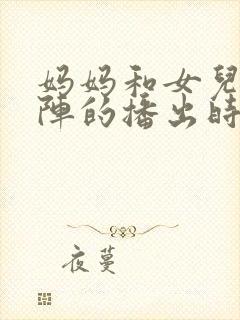 妈妈和女兒
陣的播出時
夜蔓